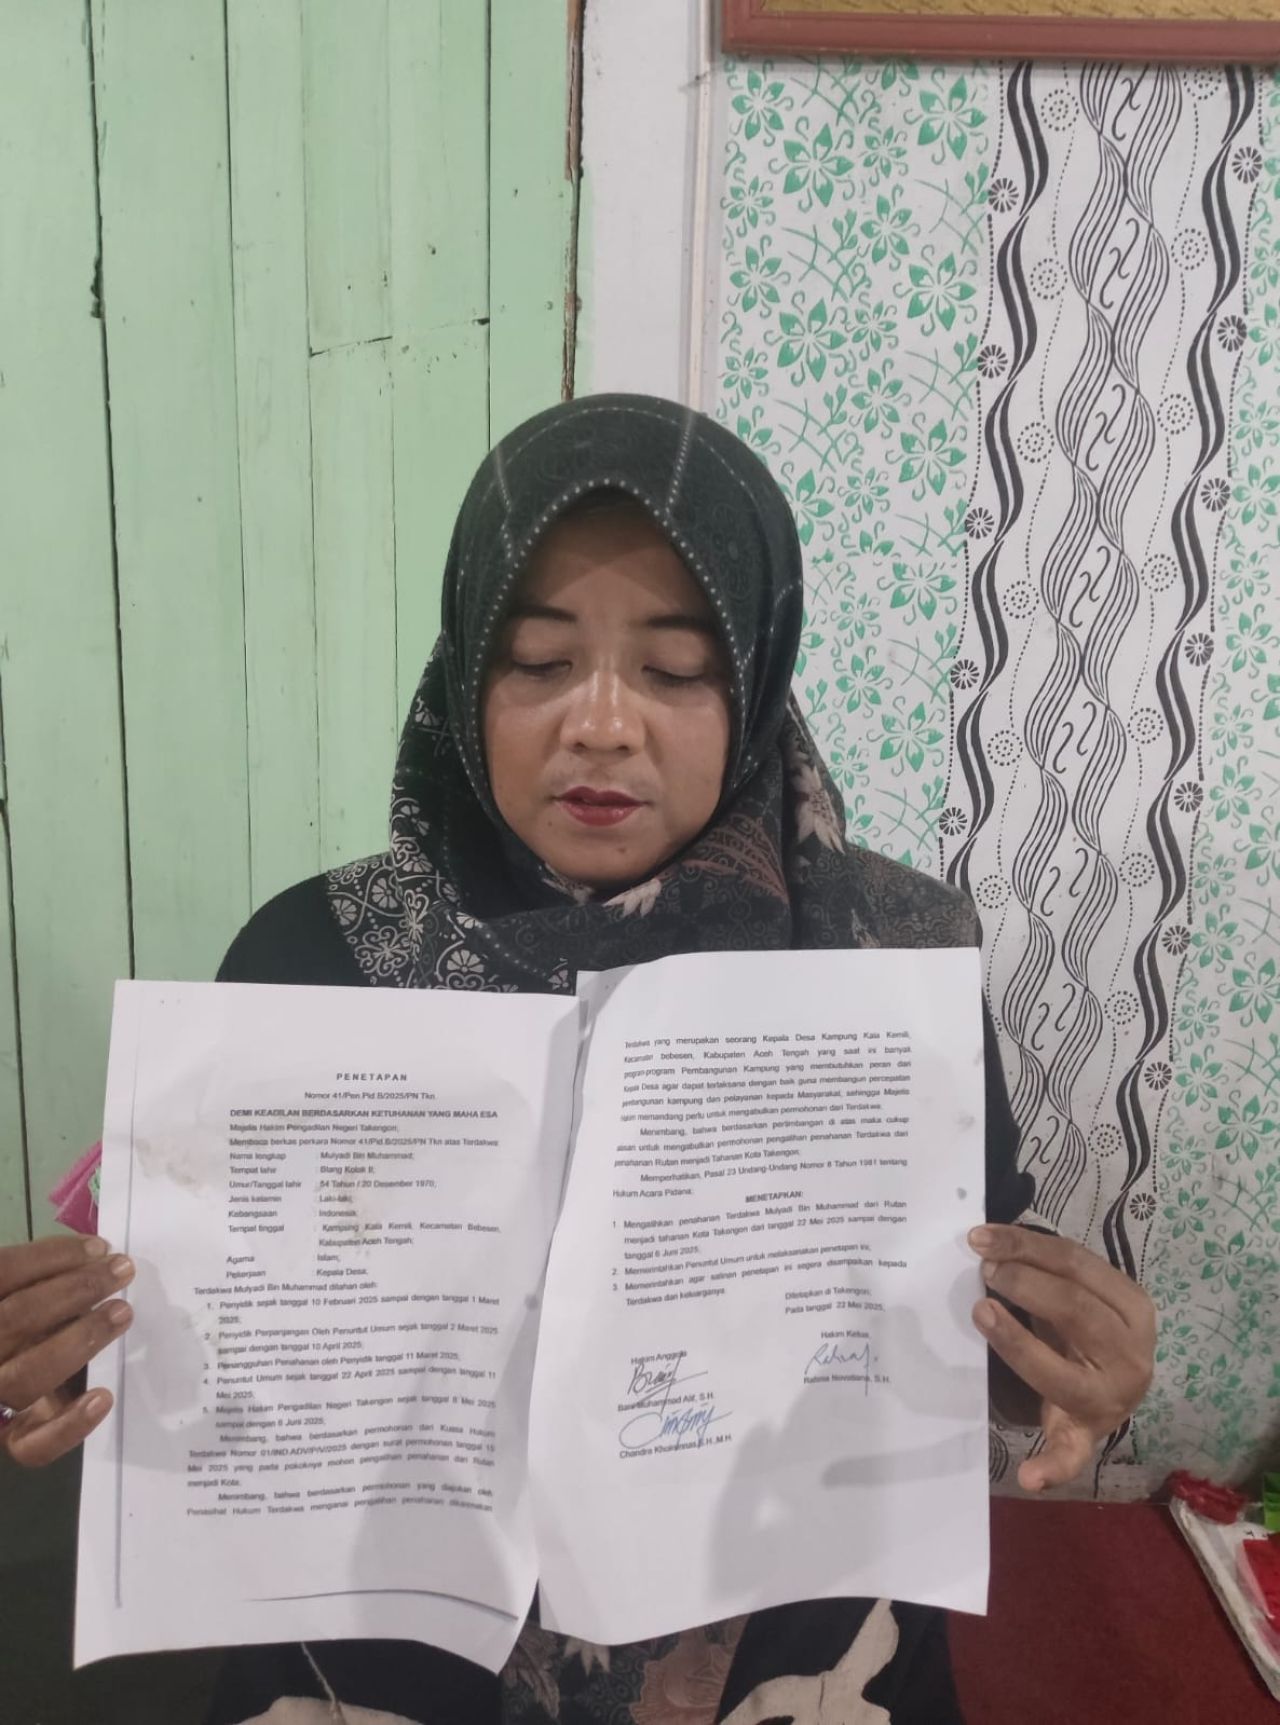 PENETAPAN
Nomor 41/Pen.Pid.B/2025/PN Tkn.
DEMI KEADILAN BERDASARKAN KETUHANAN YANG MAHA ESA
Majelis Hakim Pengadilan Negeri Takengon;
Membaca berkas perkara Nomor 41/Pid.B/2025/PN Tkn atas Terdakwa:
Nama lengkap : Mulyadi Bin Muhammad;
Tempat lahir : Blang Kolak II;
Umur/Tanggal lahir : 54 Tahun / 20 Desember 1970;
Jenis kelamin : Laki-laki;
Kebangsaan : Indonesia;
Tempat tinggal : Kampung Kala Kemili, Kecamatan Bebesen,
Kabupaten Aceh Tengah;
Agama : Islam;
Pekerjaan : Kepala Desa;
Terdakwa Mulyadi Bin Muhammad ditahan oleh:
1. Penyidik sejak tanggal 10 Februari 2025 sampai dengan tanggal 1 Maret
2025;
2. Penyidik Perpanjangan Oleh Penuntut Umum sejak tanggal 2 Maret 2025
sampai dengan tanggal 10 April 2025;
3. Penangguhan Penahanan oleh Penyidik tanggal 11 Maret 2025;
4. Penuntut Umum sejak tanggal 22 April 2025 sampai dengan tanggal 11
Mei 2025;
5. Majelis Hakim Pengadilan Negeri Takengon sejak tanggal 8 Mei 2025
sampai dengan 6 Juni 2025;
Menimbang, bahwa berdasarkan permohonan dari Kuasa Hukum
Terdakwa Nomor 01/IND.ADV/P/V/2025 dengan surat permohonan tanggal 15
Mei 2025 yang pada pokoknya mohon pengalihan penahanan dari Rutan
menjadi Kota;
Menimbang, bahwa berdasarkan permohonan yang diajukan oleh
Penasihat Hukum Terdakwa mengenai pengalihan penahanan dikarenakan
Terdakwa yang merupakan seorang Kepala Desa Kampung Kala Kemili,
Kecamatan bebesen, Kabupaten Aceh Tengah yang saat ini banyak
program-program Pembangunan Kampung yang membutuhkan peran dari
Kepala Desa agar dapat terlaksana dengan baik guna membangun percepatan
pembangunan kampung dan pelayanan kepada Masyarakat, sehingga Majelis
Hakim memandang perlu untuk mengabulkan permohonan dari Terdakwa;
Menimbang, bahwa berdasarkan pertimbangan di atas maka cukup
alasan untuk mengabulkan permohonan pengalihan penahanan Terdakwa dari
penahanan Rutan menjadi Tahanan Kota Takengon;
Memperhatikan, Pasal 23 Undang-Undang Nomor 8 Tahun 1981 tentang
Hukum Acara Pidana;
MENETAPKAN:
1. Mengalihkan penahanan Terdakwa Mulyadi Bin Muhammad dari Rutan
menjadi tahanan Kota Takengon dari tanggal 22 Mei 2025 sampai dengan
tanggal 6 Juni 2025;
2. Memerintahkan Penuntut Umum untuk melaksanakan penetapan ini;
3. Memerintahkan agar salinan penetapan ini segera disampaikan kepada
Terdakwa dan keluarganya.
Ditetapkan di Takengon;
Pada tanggal 22 Mei 2025;
Hakim Anggota Hakim Ketua,
Bani Muhammad Alif, S.H. Rahma Novatiana, S.H.
Chandra Khoirunnas, S.H.,M.H.